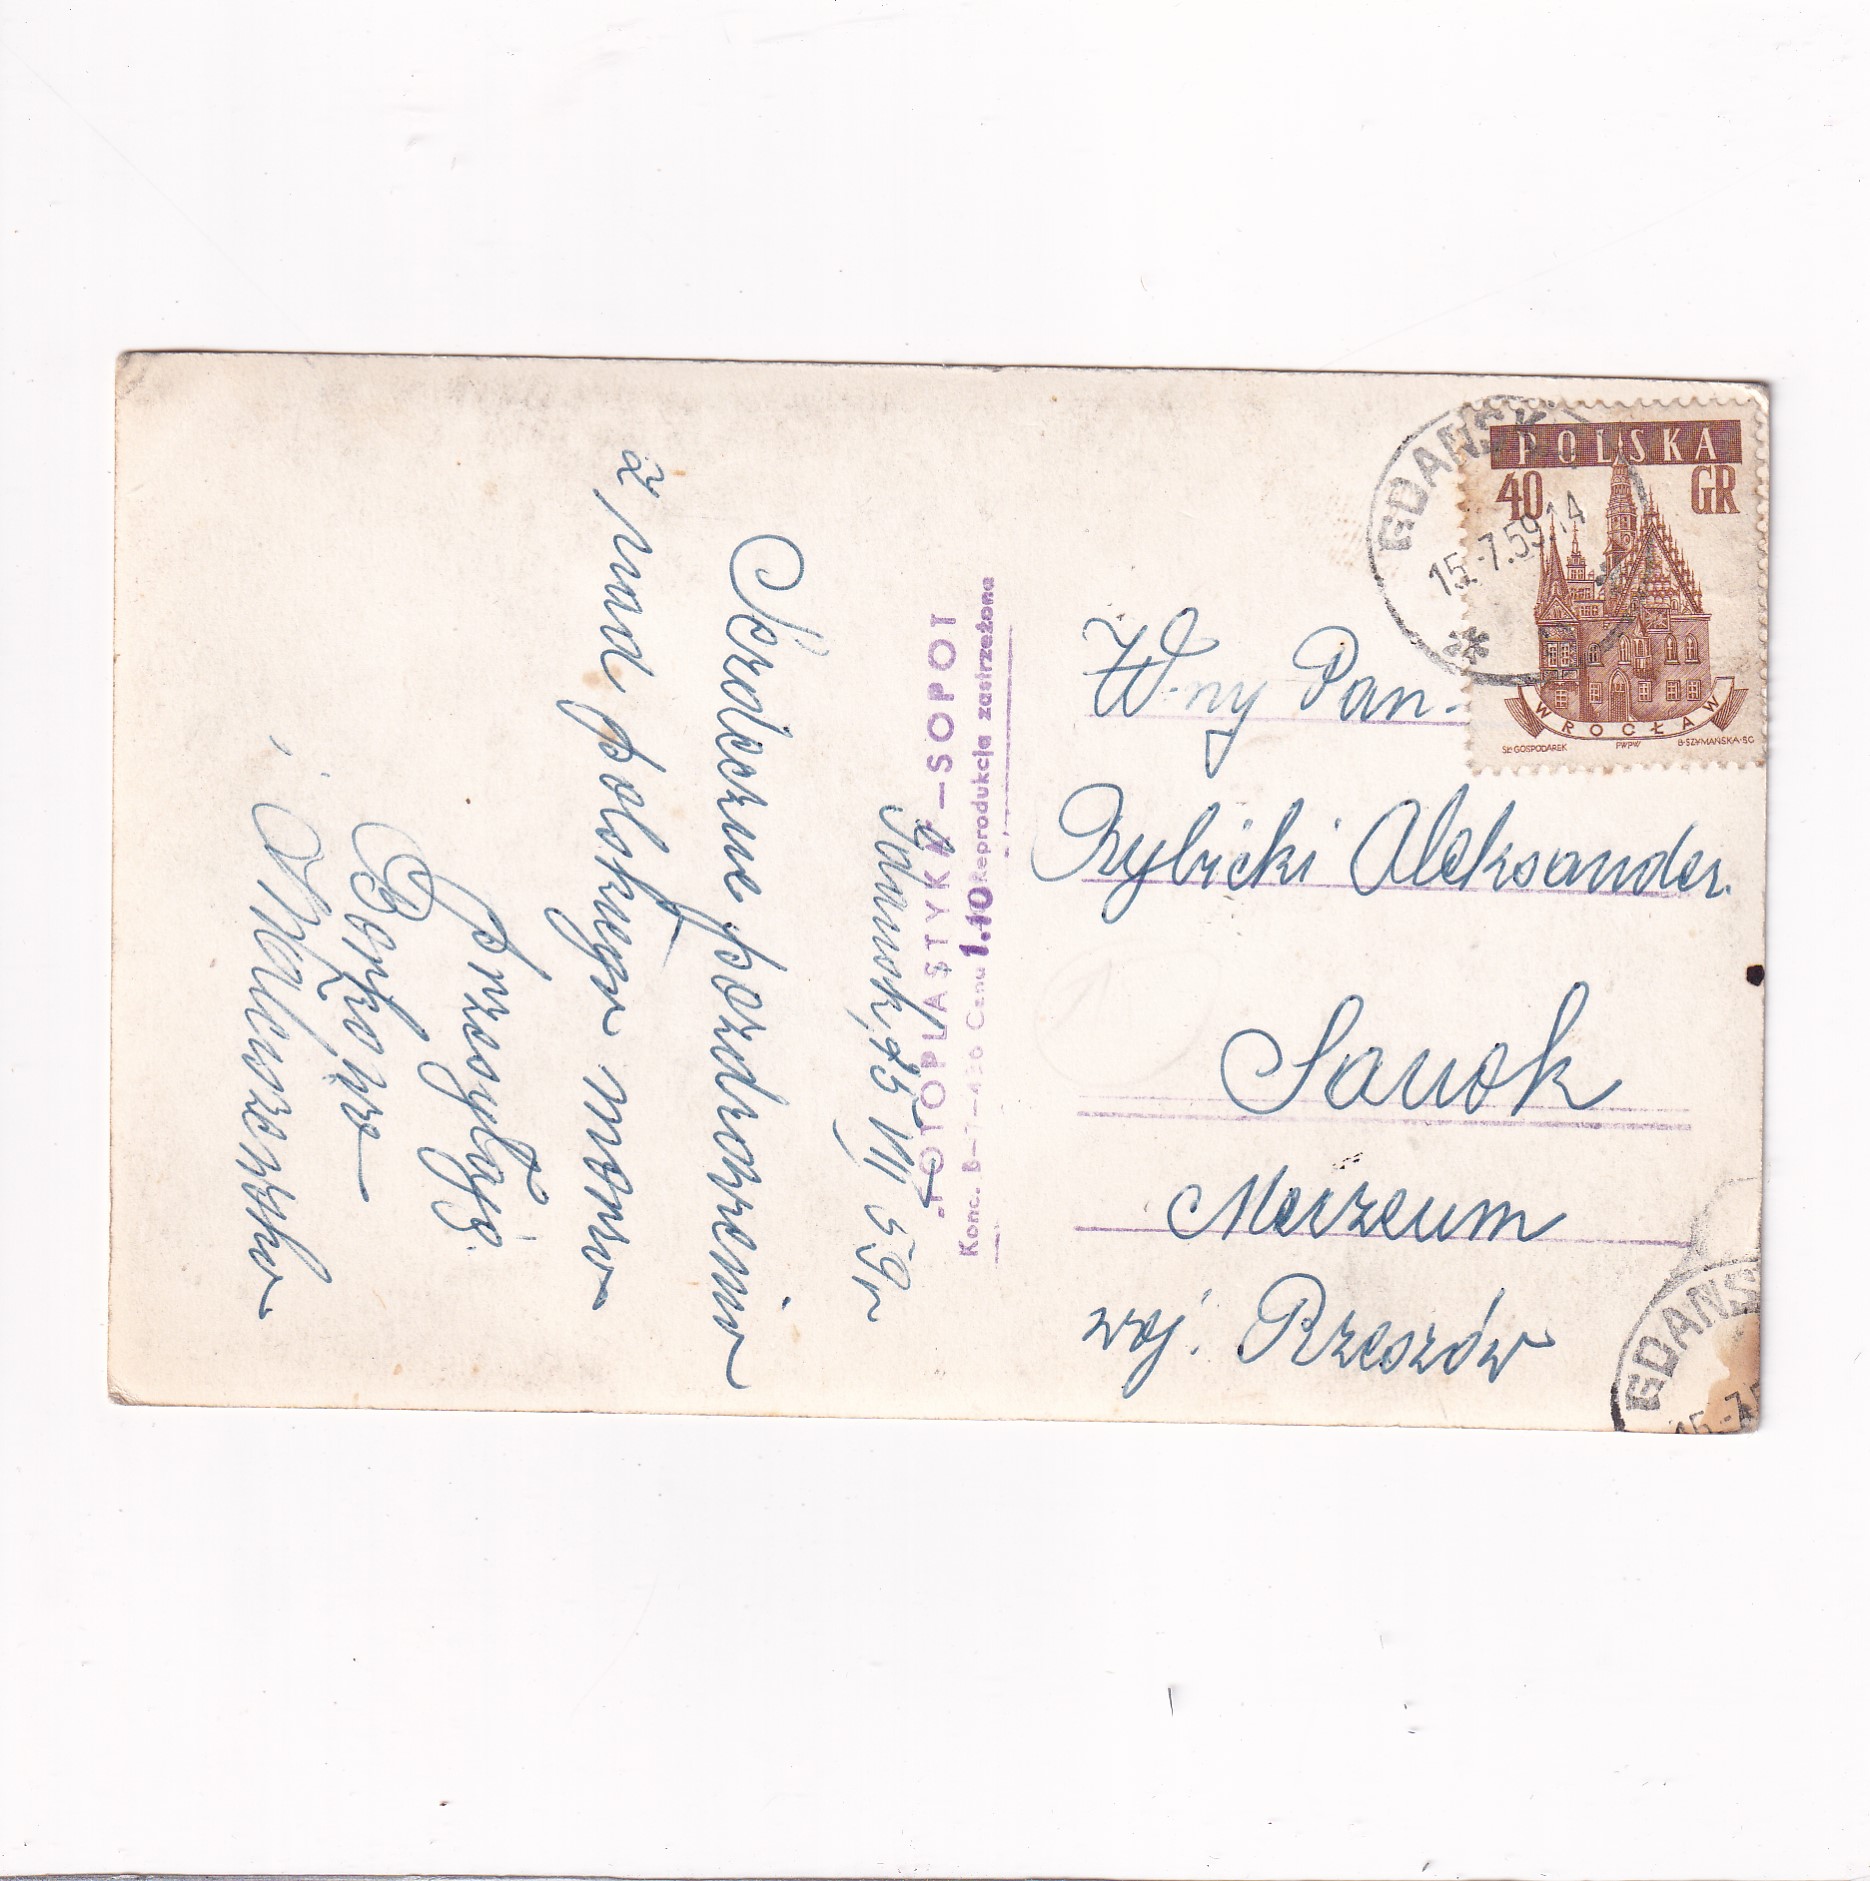 Gdańsk, 15 VII 59 r
Serdeczne pozdrowienia
z nad polskiego morza
przesyłają
POLSKA
40 GR
WROCŁAW
SŁ. GOSPODAREK PWPW B. SZYMAŃSKA·SC
GDAŃSK
15.-7.59.14
„FOTOPLASTYKA"—SOPOT
Konc. B-7-436 Cena 1.10 Reprodukcja zastrzeżona
W-ny Pan-
Rybicki Aleksander.
Sanok
Muzeum
woj. Rzeszów
GDAŃSK
15.-7.5